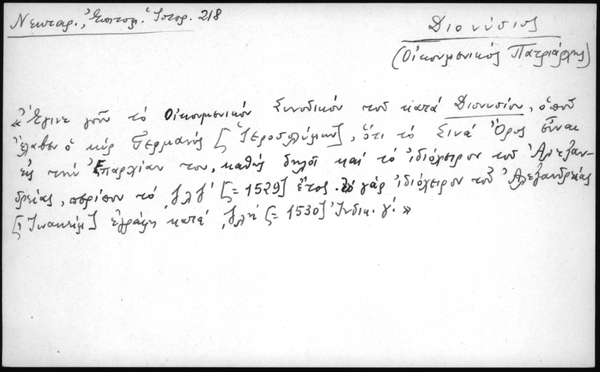 Νεκταρ., Ἐπιτομ. Ἱστορ. 218
Διονύσιος
(Οἰκουμενικός Πατριάρχης)
«Ἔγινε γοῦν τό Οἰκουμενικόν Συνοδικόν τοῦ κατά Διονυσίου, ὁποῦ
ἔλαβεν ὁ κύρ Γερμανός [Ἱεροσολύμων], ὅτι τό Σινᾶ Ὄρος εἶναι
εἰς τήν Ἐπαρχίαν του, καθώς δηλοῖ καί τό ἰδιόχειρον τοῦ Ἀλεξαν-
δρείας, περίπου τό ͵ζλζʹ [= 1529] ἔτος. τό γάρ ἰδιόχειρον τοῦ Ἀλεξανδρείας
[Ἰωακείμ] ἐγράφη κατά ͵ζληʹ [= 1530] Ἰνδικ. γʹ.»